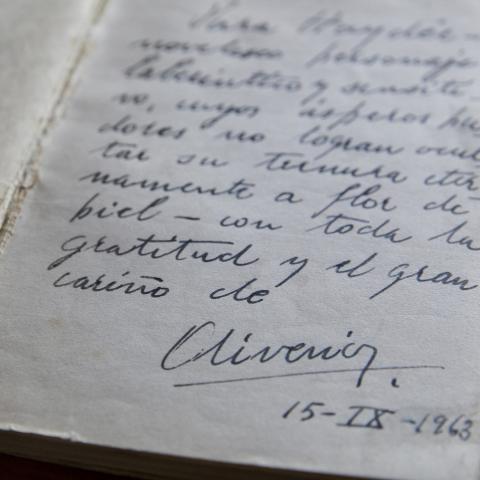 Para Haydée –
novelesco personaje
laberíntico y sensiti–
vo, cuyos ásperos pu
dores no logran ocul
tar su ternura eter
namente a flor de
piel – con toda la
gratitud y el gran
cariño de
Oliverio.
15-IX-1963